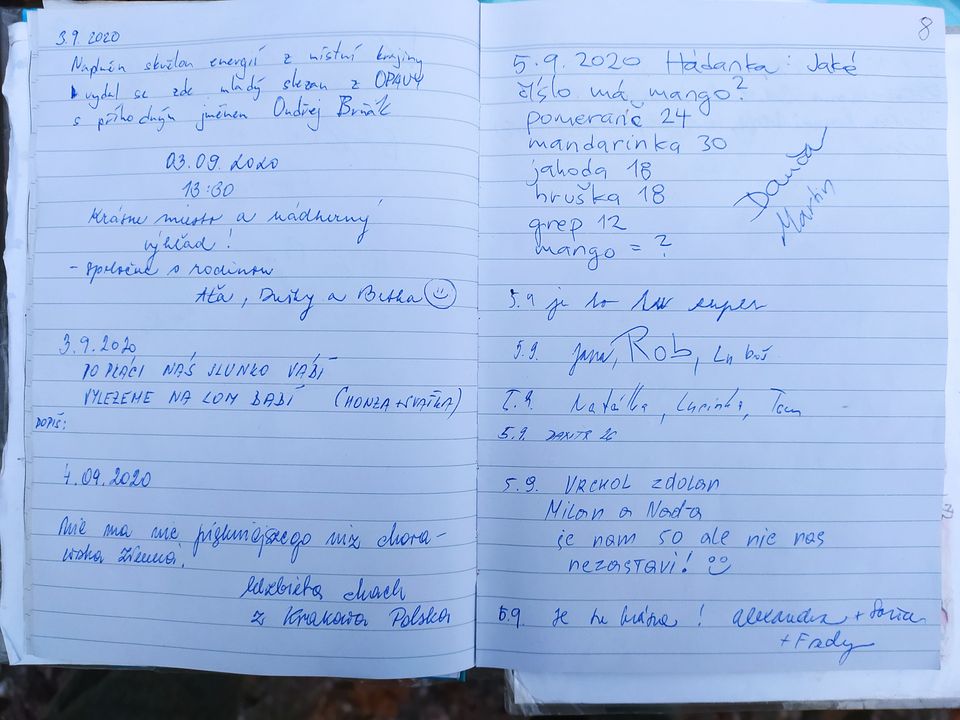 3.9.2020
Naplněn skvělou energií z místní krajiny
vydal se zde mladý slezan z OPAVY
s příhodným jménem Ondřej Brňák
03.09.2020
13:30
Krásne miesto a nádherný
výhľad!
- spoločne s rodinou
Aťa, Dušky a Betka
3.9.2020
PO PLÁČI NÁS SLUNKO VÁBÍ
VYLEZEME NA LOM BABÍ (HONZA +
DOPIŠ:
4.09.2020
Nie ma nic piękniejszego niż
Elżbieta
z Krakowa Polska
8
5.9.2020 Hádanka: Jaké
číslo má mango?
pomeranč 24
mandarinka 30
jahoda 18
hruška 18
grep 12
mango = ?
Danča
Martin
5.9 je to super
5.9. Jana, Rob, Luboš
5.9. Natálka, Lucinka, Tom
5.9.
5.9. VRCHOL zdolan
Milan a Naďa
je nam 50 ale nic nas
nezastaví!
5.9. Je tu krásně! Alexandra +
+ Fredy